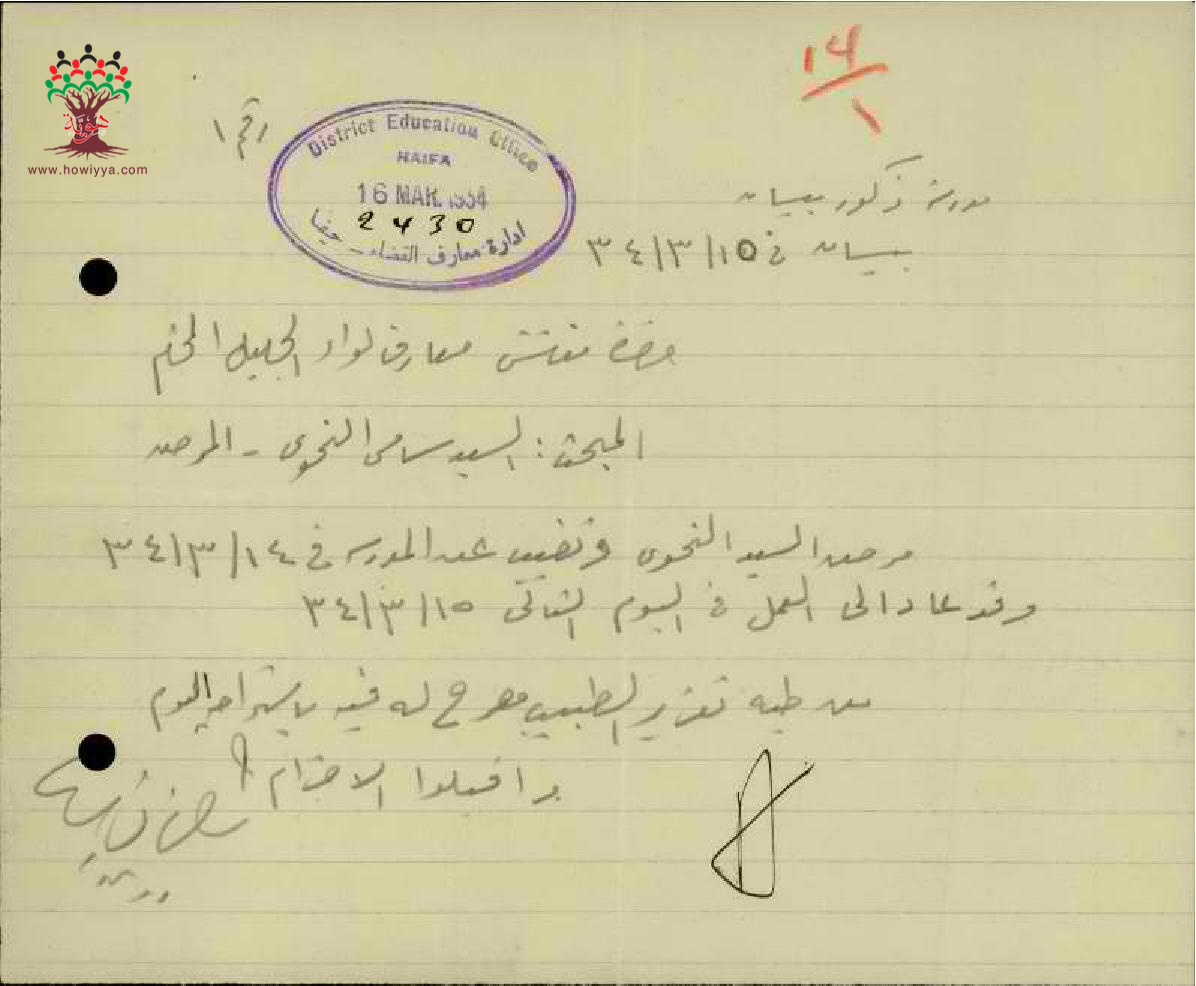 ١٤/١
www.howiyya.com
رقم ١
District Education Office
HAIFA
16 MAR. 1934
2430
ادارة معارف القضاء - حيفا
مدرسة ذكور بيسان
بيسان في ١٥/٣/٣٤
حضرة مفتش معارف لواء الجليل المحترم
المبحث: السيد سامي النحوي - المرض
مرض السيد النحوي وتغيب عن المدرسة في ١٤/٣/٣٤
وقد عاد الى العمل في اليوم الثاني ١٥/٣/٣٤
من طيه تقرير الطبيب مصرح له فيه باستراحة اليوم
واقبلوا الاحترام